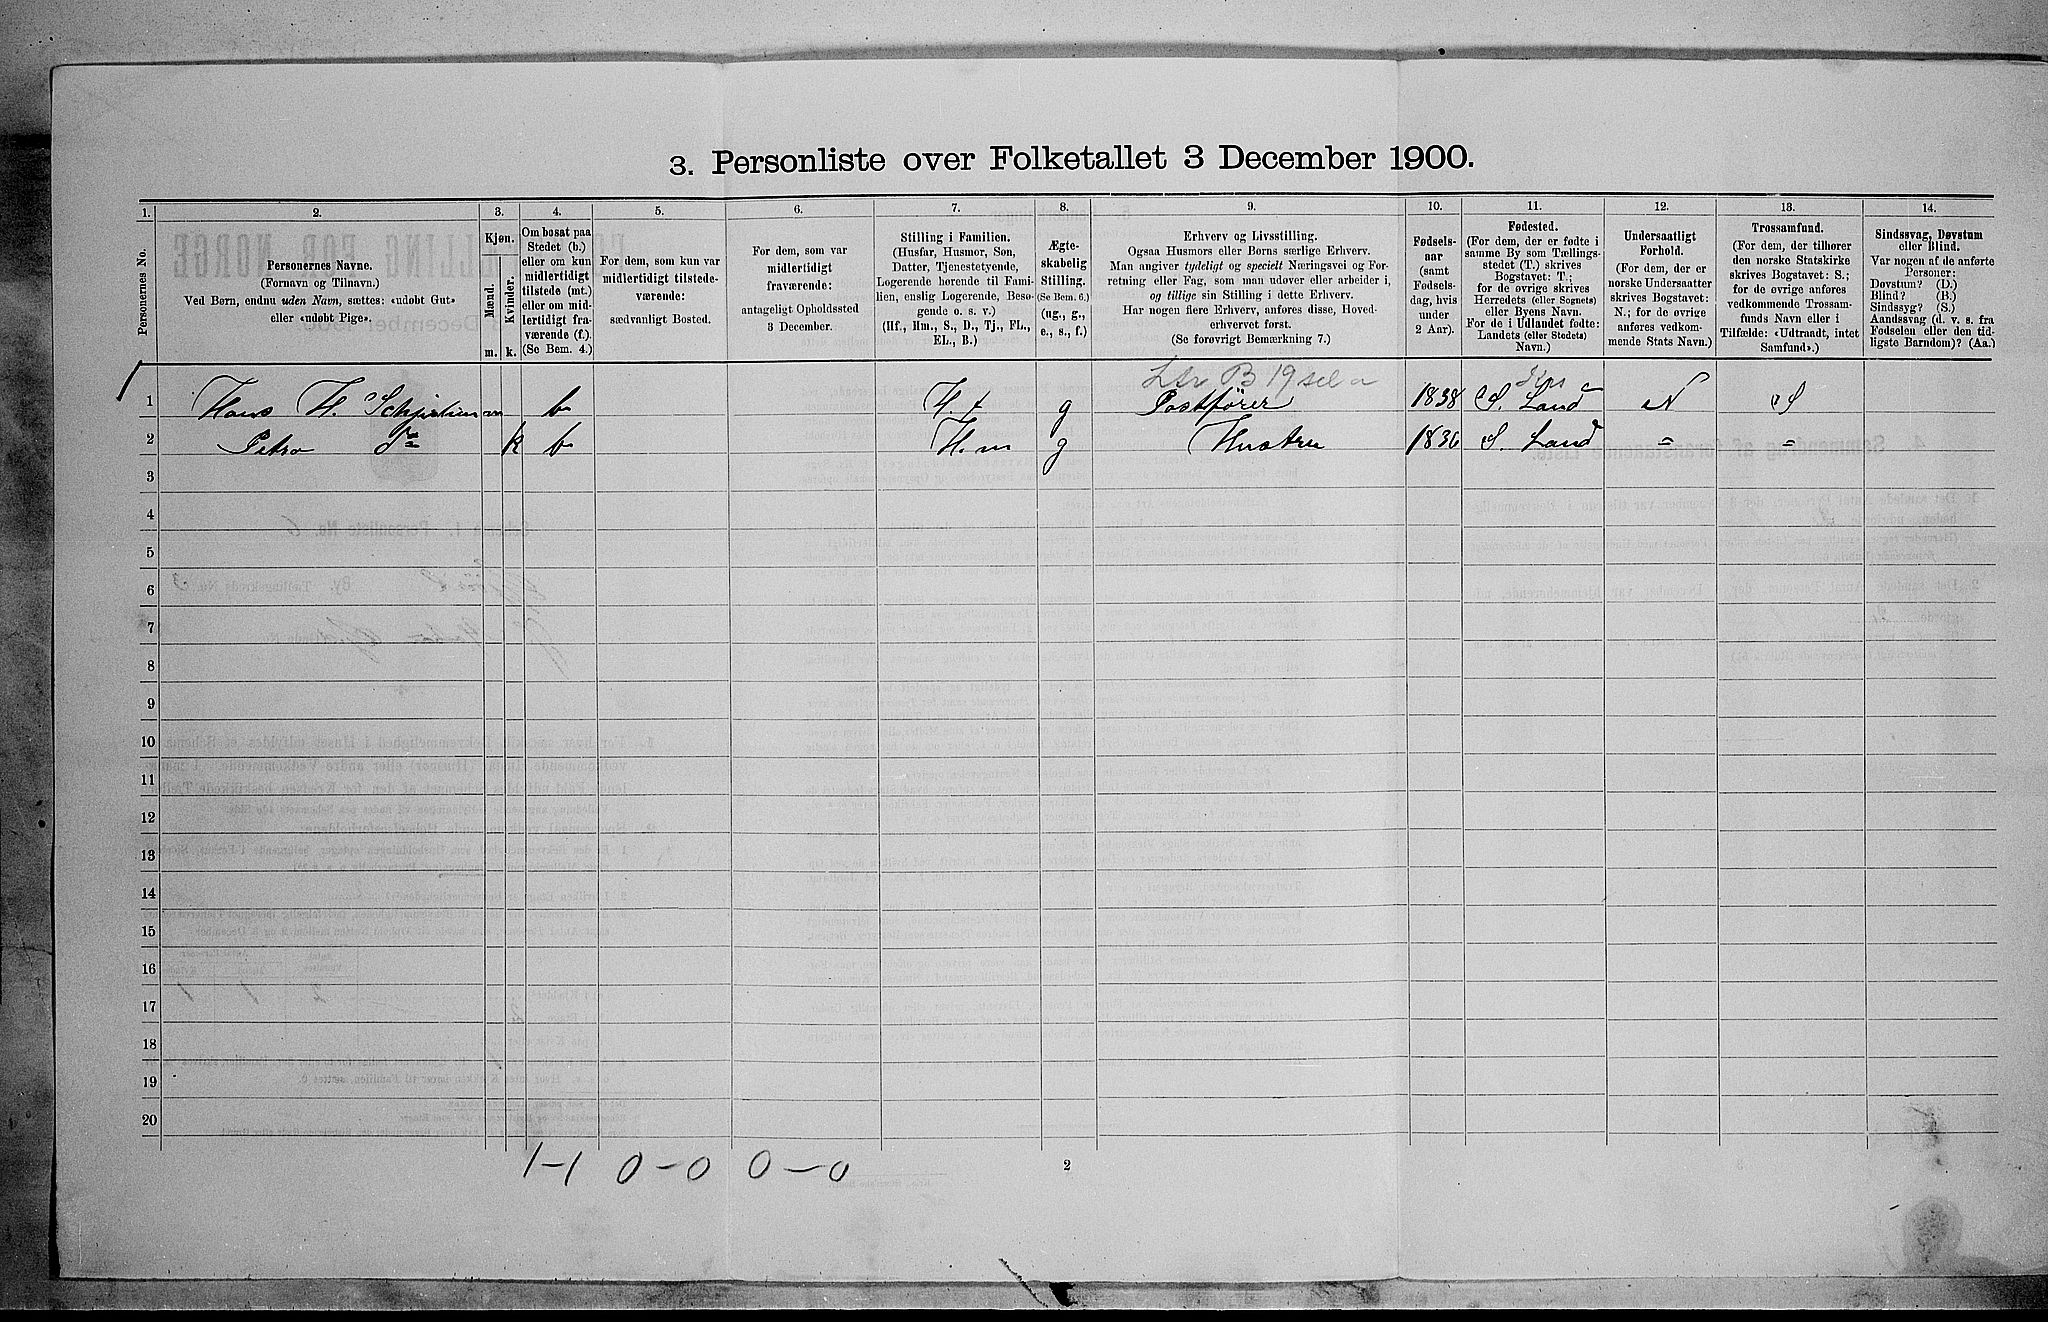 3. Personliste over Folketallet 3 December 1900.
1. 2. 3. 4. 5. 6. 7. 8. 9. 10. 11. 12. 13. 14.
Personernes No.
Personernes Navne.
(Fornavn og Tilnavn.)
Ved Børn, endnu uden Navn, sættes: «udøbt Gut»
eller «udøbt Pige».
Kjøn.
Mænd.
Kvinder.
m. k.
Om bosat paa
Stedet (b.)
eller om kun
midlertidigt
tilstede (mt.)
eller om mid-
lertidigt fra-
værende (f.)
(Se Bem. 4.)
For dem, som kun var
midlertidigt tilstede-
værende:
sædvanligt Bosted.
For dem, som var
midlertidigt
fraværende:
antageligt Opholdssted
3 December.
Stilling i Familien.
(Husfar, Husmor, Søn,
Datter, Tjenestetyende,
Logerende hørende til Fami-
lien, enslig Logerende, Besø-
gende o. s. v.)
(Hf., Hm., S., D., Tj., FL.,
EL., B.)
Ægte-
skabelig
Stilling.
(Se Bem. 6.)
(ug., g.,
e., s., f.)
Erhverv og Livsstilling.
Ogsaa Husmors eller Børns særlige Erhverv.
Man angiver tydeligt og specielt Næringsvei og For-
retning eller Fag, som man udøver eller arbeider i,
og tillige sin Stilling i dette Erhverv.
Har nogen flere Erhverv, anføres disse, Hoved-
erhvervet først.
(Se forøvrigt Bemærkning 7.)
Fødsels-
aar
(samt
Fødsels-
dag, hvis
under
2 Aar).
Fødested.
(For dem, der er fødte i
samme By som Tællings-
stedet (T.) skrives
Bogstavet: T.;
for de øvrige skrives
Herredets (eller Sognets)
eller Byens Navn.
For de i Udlandet fødte:
Landets (eller Stedets)
Navn.)
Undersaatligt
Forhold.
(For dem, der er
norske Undersaatter
skrives Bogstavet:
N.; for de øvrige
anføres vedkom-
mende Stats Navn.)
Trossamfund.
(For dem, der tilhører
den norske Statskirke
skrives Bogstavet: S.;
for de øvrige anføres
vedkommende Trossam-
funds Navn eller i
Tilfælde: «Udtraadt, intet
Samfund».)
Sindssvag, Døvstum
eller Blind.
Var nogen af de anførte
Personer:
Døvstum? (D.)
Blind? (B.)
Sindssyg? (S.)
Aandssvag (d. v. s. fra
Fødselen eller den tid-
ligste Barndom)? (Aa.)
B 19
1 Hans H. m b H.f g Postfører 1838 S. Land N S
2 Petra do k b H.m g Hustru 1836 S. Land " "
3
4
5
6
7
8
9
10
11
12
13
14
15
16
17
18
19
20
1-1 0-0 0-0
2